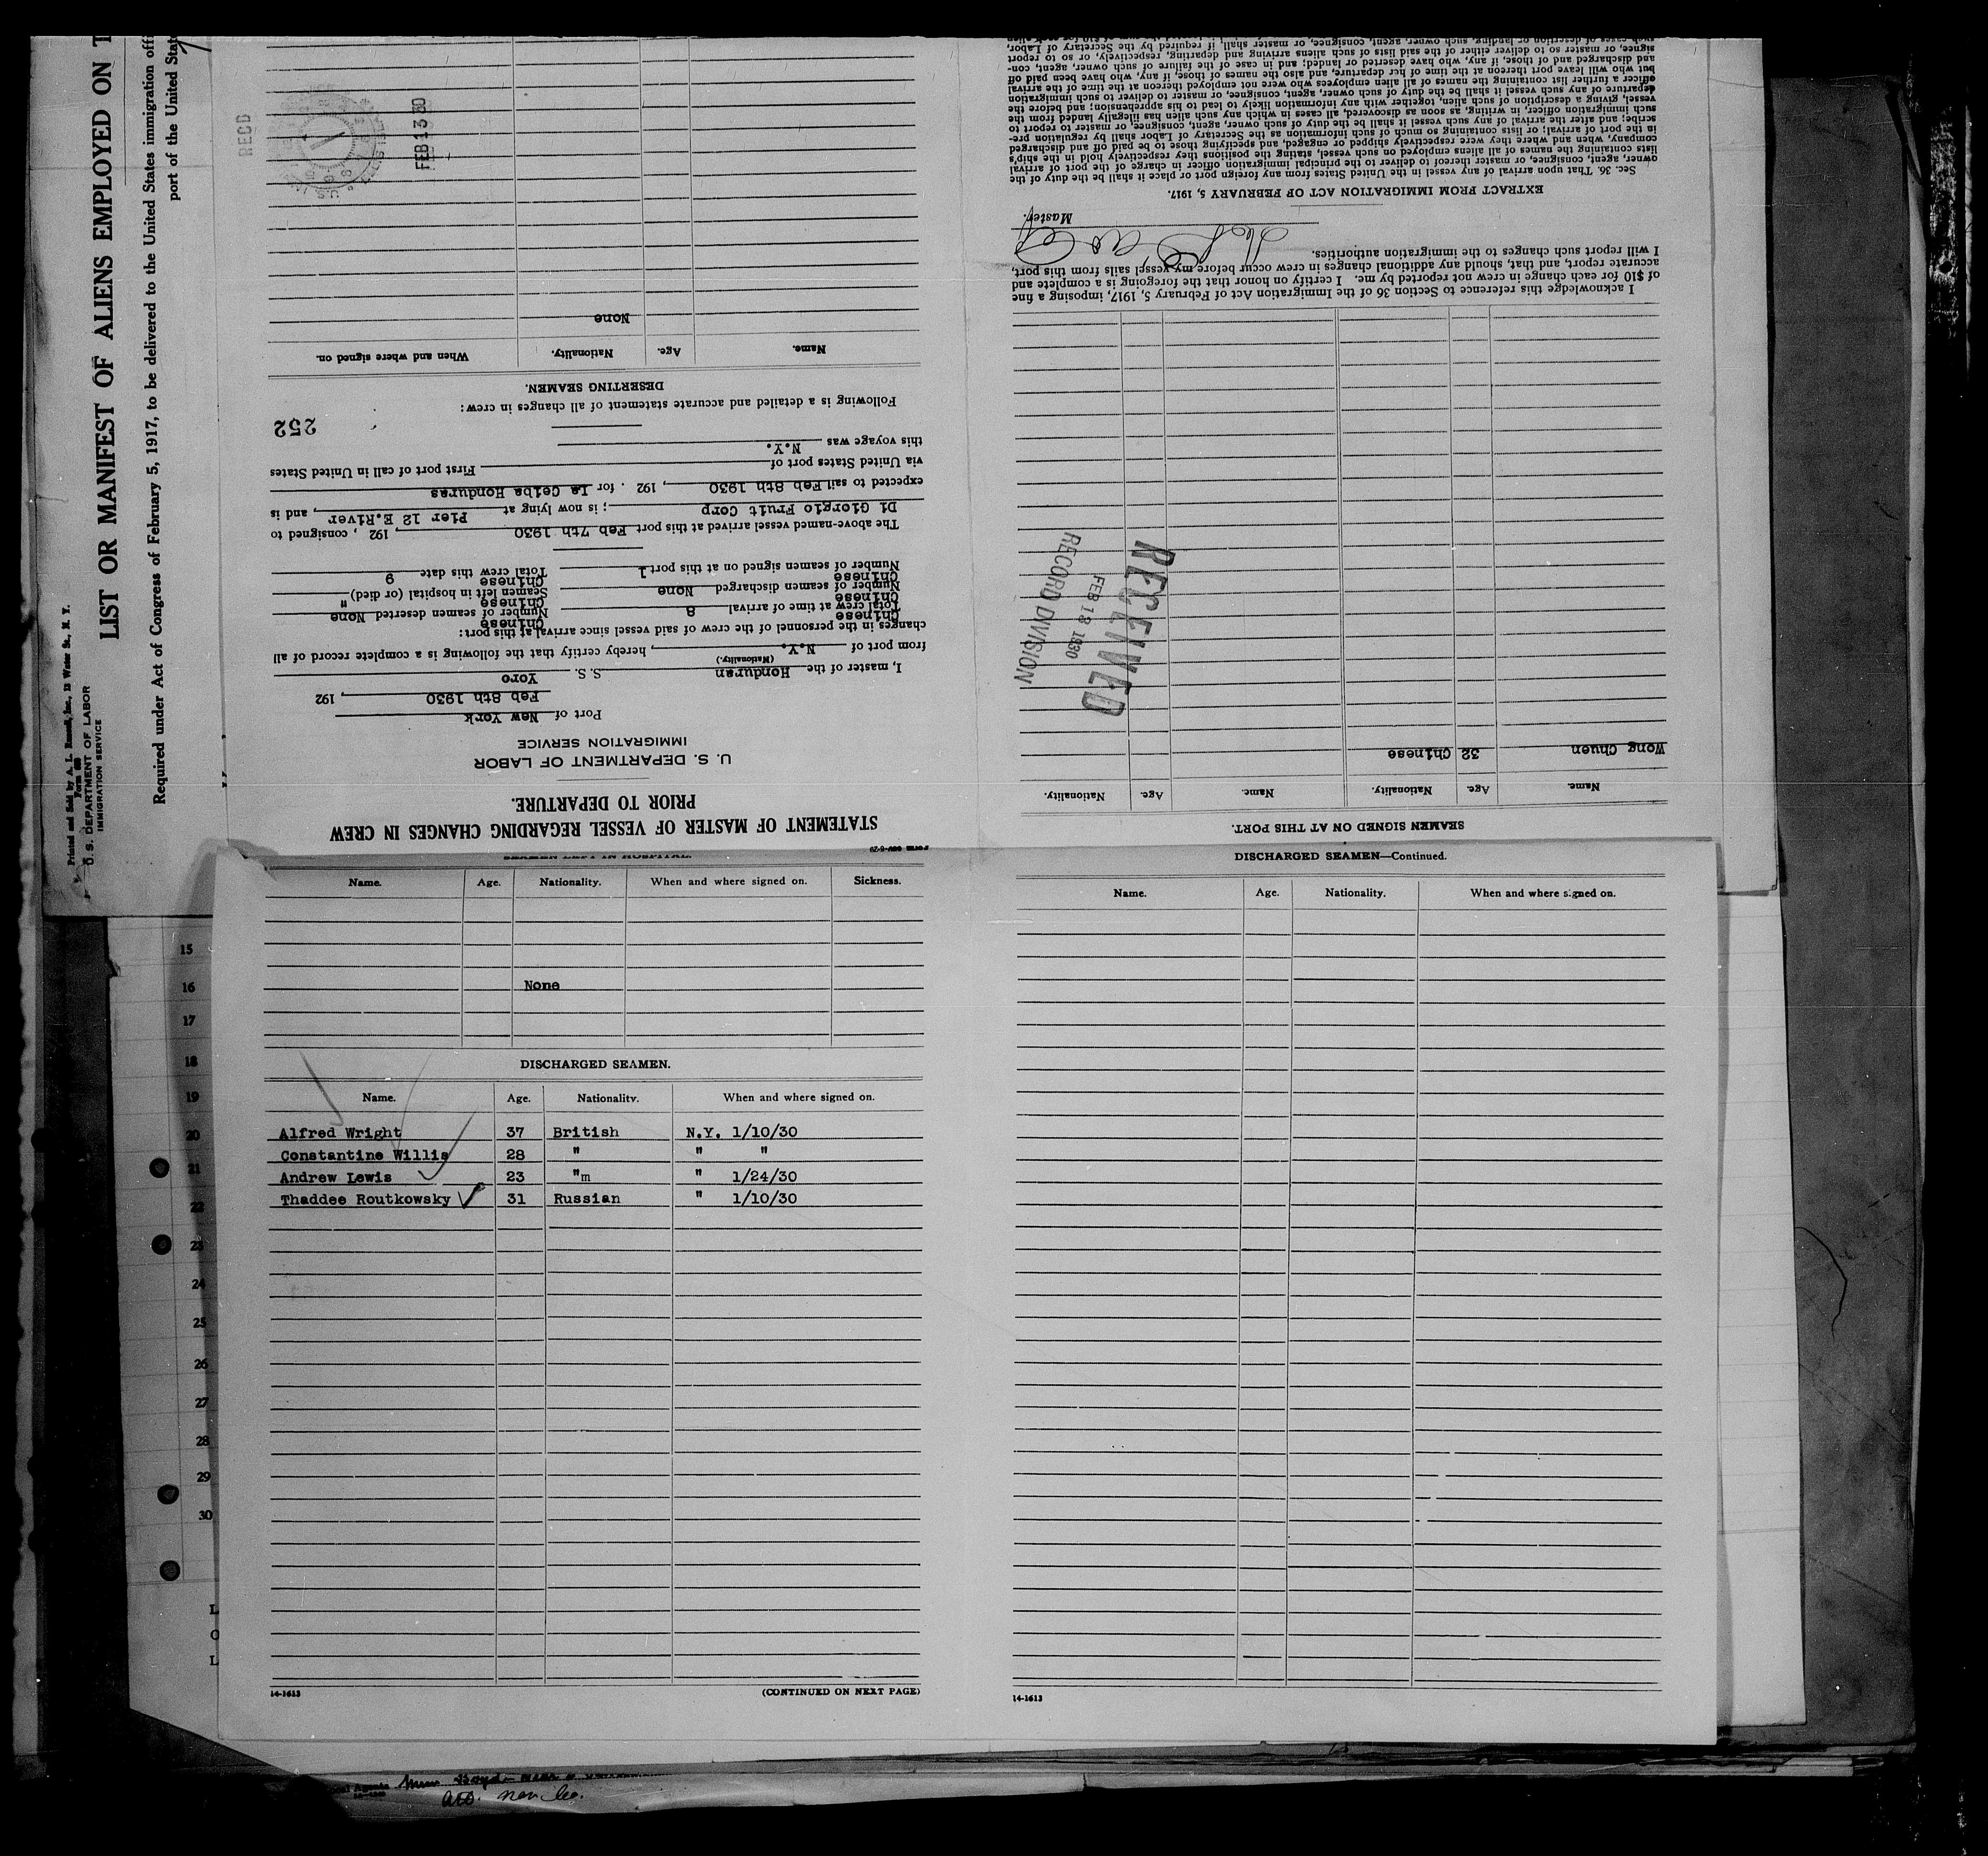 Printed and Sold by A. L. Russell, Inc., 13 Water St., N. Y.
U. S. DEPARTMENT OF LABOR
IMMIGRATION SERVICE
LIST OR MANIFEST OF ALIENS EMPLOYED ON
Required under Act of Congress of February 5, 1917, to be delivered to the United States immigration
port of the United
STATEMENT OF MASTER OF VESSEL REGARDING CHANGES IN CREW
PRIOR TO DEPARTURE.
U. S. DEPARTMENT OF LABOR
IMMIGRATION SERVICE
Port of New York
Feb 8th 1930, 192
I, master of the Honduran S. S. Yoro
(Nationality.)
from port of N.Y., hereby certify that the following is a complete record of all
changes in the personnel of the crew of said vessel since arrival at this port:
Chinese Chinese
Total crew at time of arrival 8 Number of seamen deserted None
Chinese Chinese
Number of seamen discharged None Seamen left in hospital (or died) "
Chinese Chinese
Number of seamen signed on at this port 1 Total crew this date 9
The above-named vessel arrived at this port Feb 7th 1930, 192 , consigned to
Di Giorgio Fruit Corp; is now lying at Pier 12 E.River, and is
expected to sail Feb 8th 1930, 192 . for La Ceiba Honduras
via United States port of First port of call in United States
this voyage was N.Y.
252
Following is a detailed and accurate statement of all changes in crew:
DESERTING SEAMEN.
Name. Age. Nationality. When and where signed on.
None
FEB 13 30
RECD
SEAMEN SIGNED ON AT THIS PORT.
Name. Age. Nationality. Name. Age. Nationality.
Wong Chuen 32 Chinese
RECEIVED
FEB 13 1930
RECORD DIVISION
I acknowledge this reference to Section 36 of the Immigration Act of February 5, 1917, imposing a fine
of $10 for each change in crew not reported by me. I certify on honor that the foregoing is a complete and
accurate report, and that, should any additional changes in crew occur before my vessel sails from this port,
I will report such changes to the immigration authorities.
Master.
EXTRACT FROM IMMIGRATION ACT OF FEBRUARY 5, 1917.
Sec. 36. That upon arrival of any vessel in the United States from any foreign port or place it shall be the duty of the
owner, agent, consignee, or master thereof to deliver to the principal immigration officer in charge of the port of arrival
lists containing the names of all aliens employed on such vessel, stating the positions they respectively hold in the ship's
company, when and where they were respectively shipped or engaged, and specifying those to be paid off and discharged
in the port of arrival; or lists containing so much of such information as the Secretary of Labor shall by regulation pre-
scribe; and after the arrival of any such vessel it shall be the duty of such owner, agent, consignee, or master to report to
such immigration officer, in writing, as soon as discovered, all cases in which any such alien has illegally landed from the
vessel, giving a description of such alien, together with any information likely to lead to his apprehension; and before the
departure of any such vessel it shall be the duty of such owner, agent, consignee, or master to deliver to such immigration
officer a further list containing the names of all alien employees who were not employed thereon at the time of the arrival
but who will leave port thereon at the time of her departure, and also the names of those, if any, who have been paid off
and discharged and of those, if any, who have deserted or landed; and in case of the failure of such owner, agent, con-
signee, or master so to deliver either of the said lists of such aliens arriving and departing, respectively, or so to report
such cases of desertion or landing, such owner, agent, consignee, or master shall, if required by the Secretary of Labor,
SEAMEN LEFT IN HOSPITAL.
Name. Age. Nationality. When and where signed on. Sickness.
None
DISCHARGED SEAMEN.
Name. Age. Nationality. When and where signed on.
Alfred Wright 37 British N.Y. 1/10/30
Constantine Willis 28 " " "
Andrew Lewis 23 "m " 1/24/30
Thaddee Routkowsky 31 Russian " 1/10/30
14-1613 (CONTINUED ON NEXT PAGE)
DISCHARGED SEAMEN—Continued.
Name. Age. Nationality. When and where signed on.
14-1613
15
16
17
18
19
20
21
22
23
24
25
26
27
28
29
30